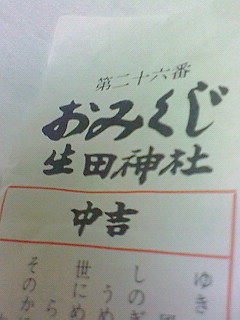 第二十六番
おみくじ
生田神社
中吉
ゆき
しのぎ
うめ
世にめ
ら
そのか